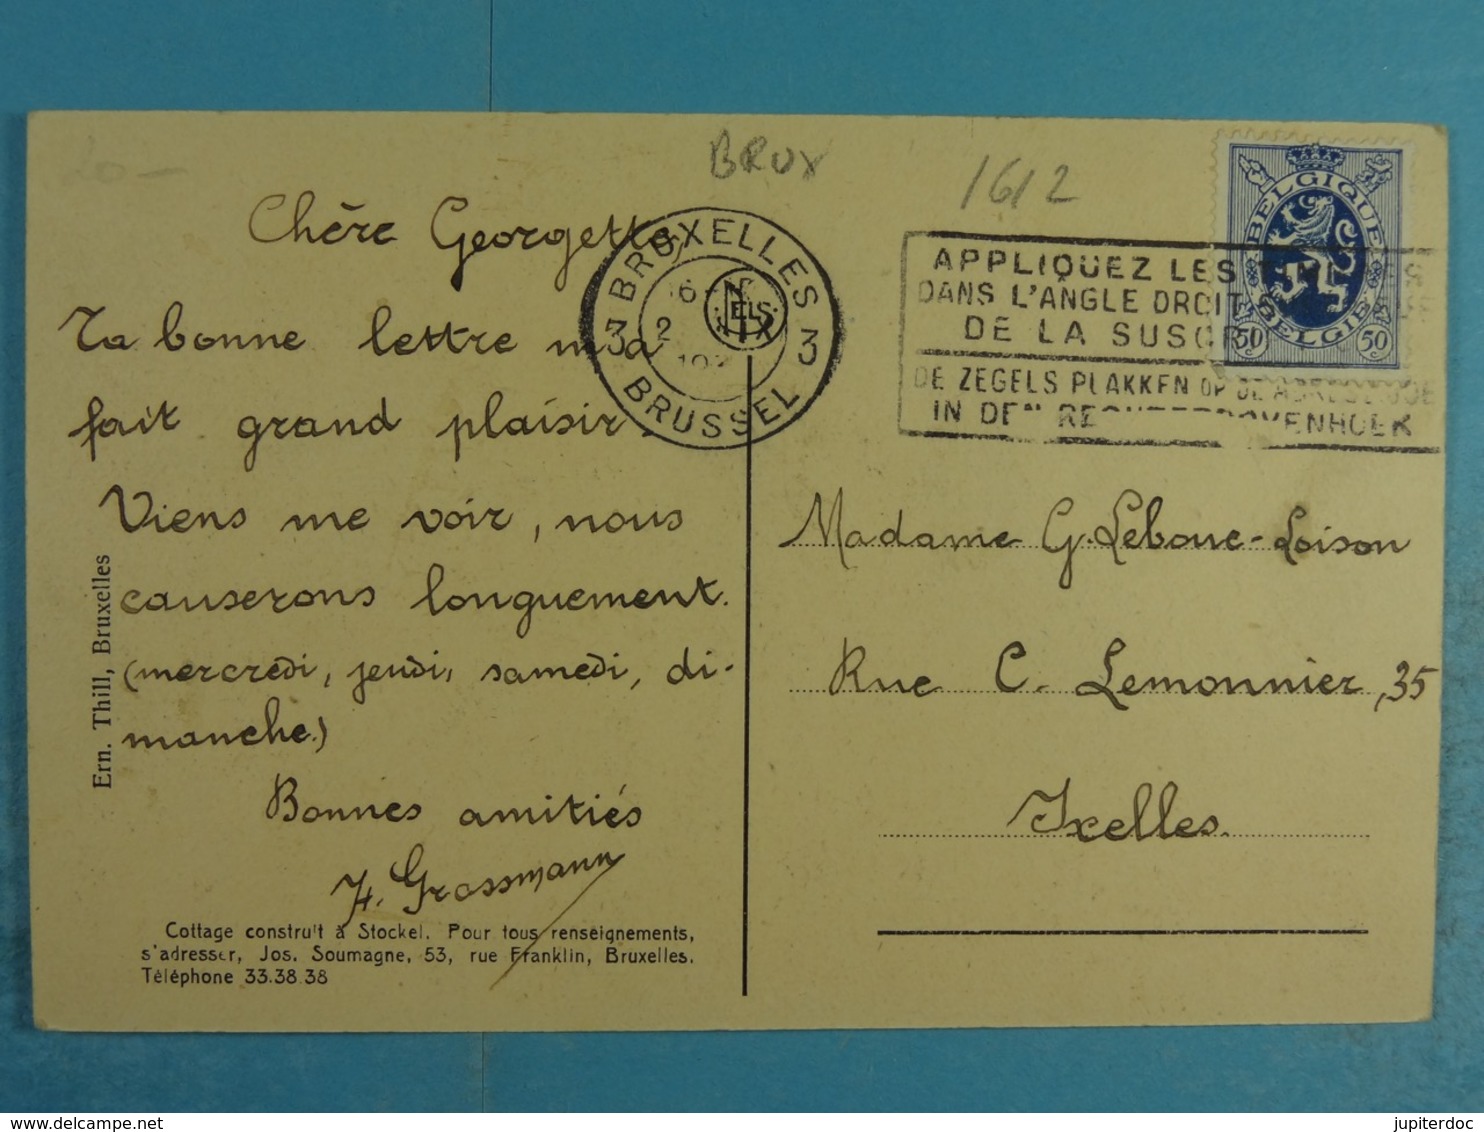 20-
BRUX
1612
Chère Georgette
Ta bonne lettre m'a
fait grand plaisir.
Viens me voir, nous
causerons longuement.
(mercredi, jeudi, samedi, di-
manche)
Bonnes amitiés
H. Grossmann
Cottage construit à Stockel. Pour tous renseignements,
s'adresser, Jos. Soumagne, 53, rue Franklin, Bruxelles.
Téléphone 33.38.38
Ern. Thill, Bruxelles
3 BRUXELLES 3
BRUSSEL
NELS
APPLIQUEZ LES
DANS L'ANGLE DROIT
DE LA
DE ZEGELS PLAKKEN OP DE
IN DEN
BELGIQUE
BELGIE
50 50
Madame G. Lebouc-Loison
Rue C. Lemonnier, 35
Ixelles.
jupiterdoc